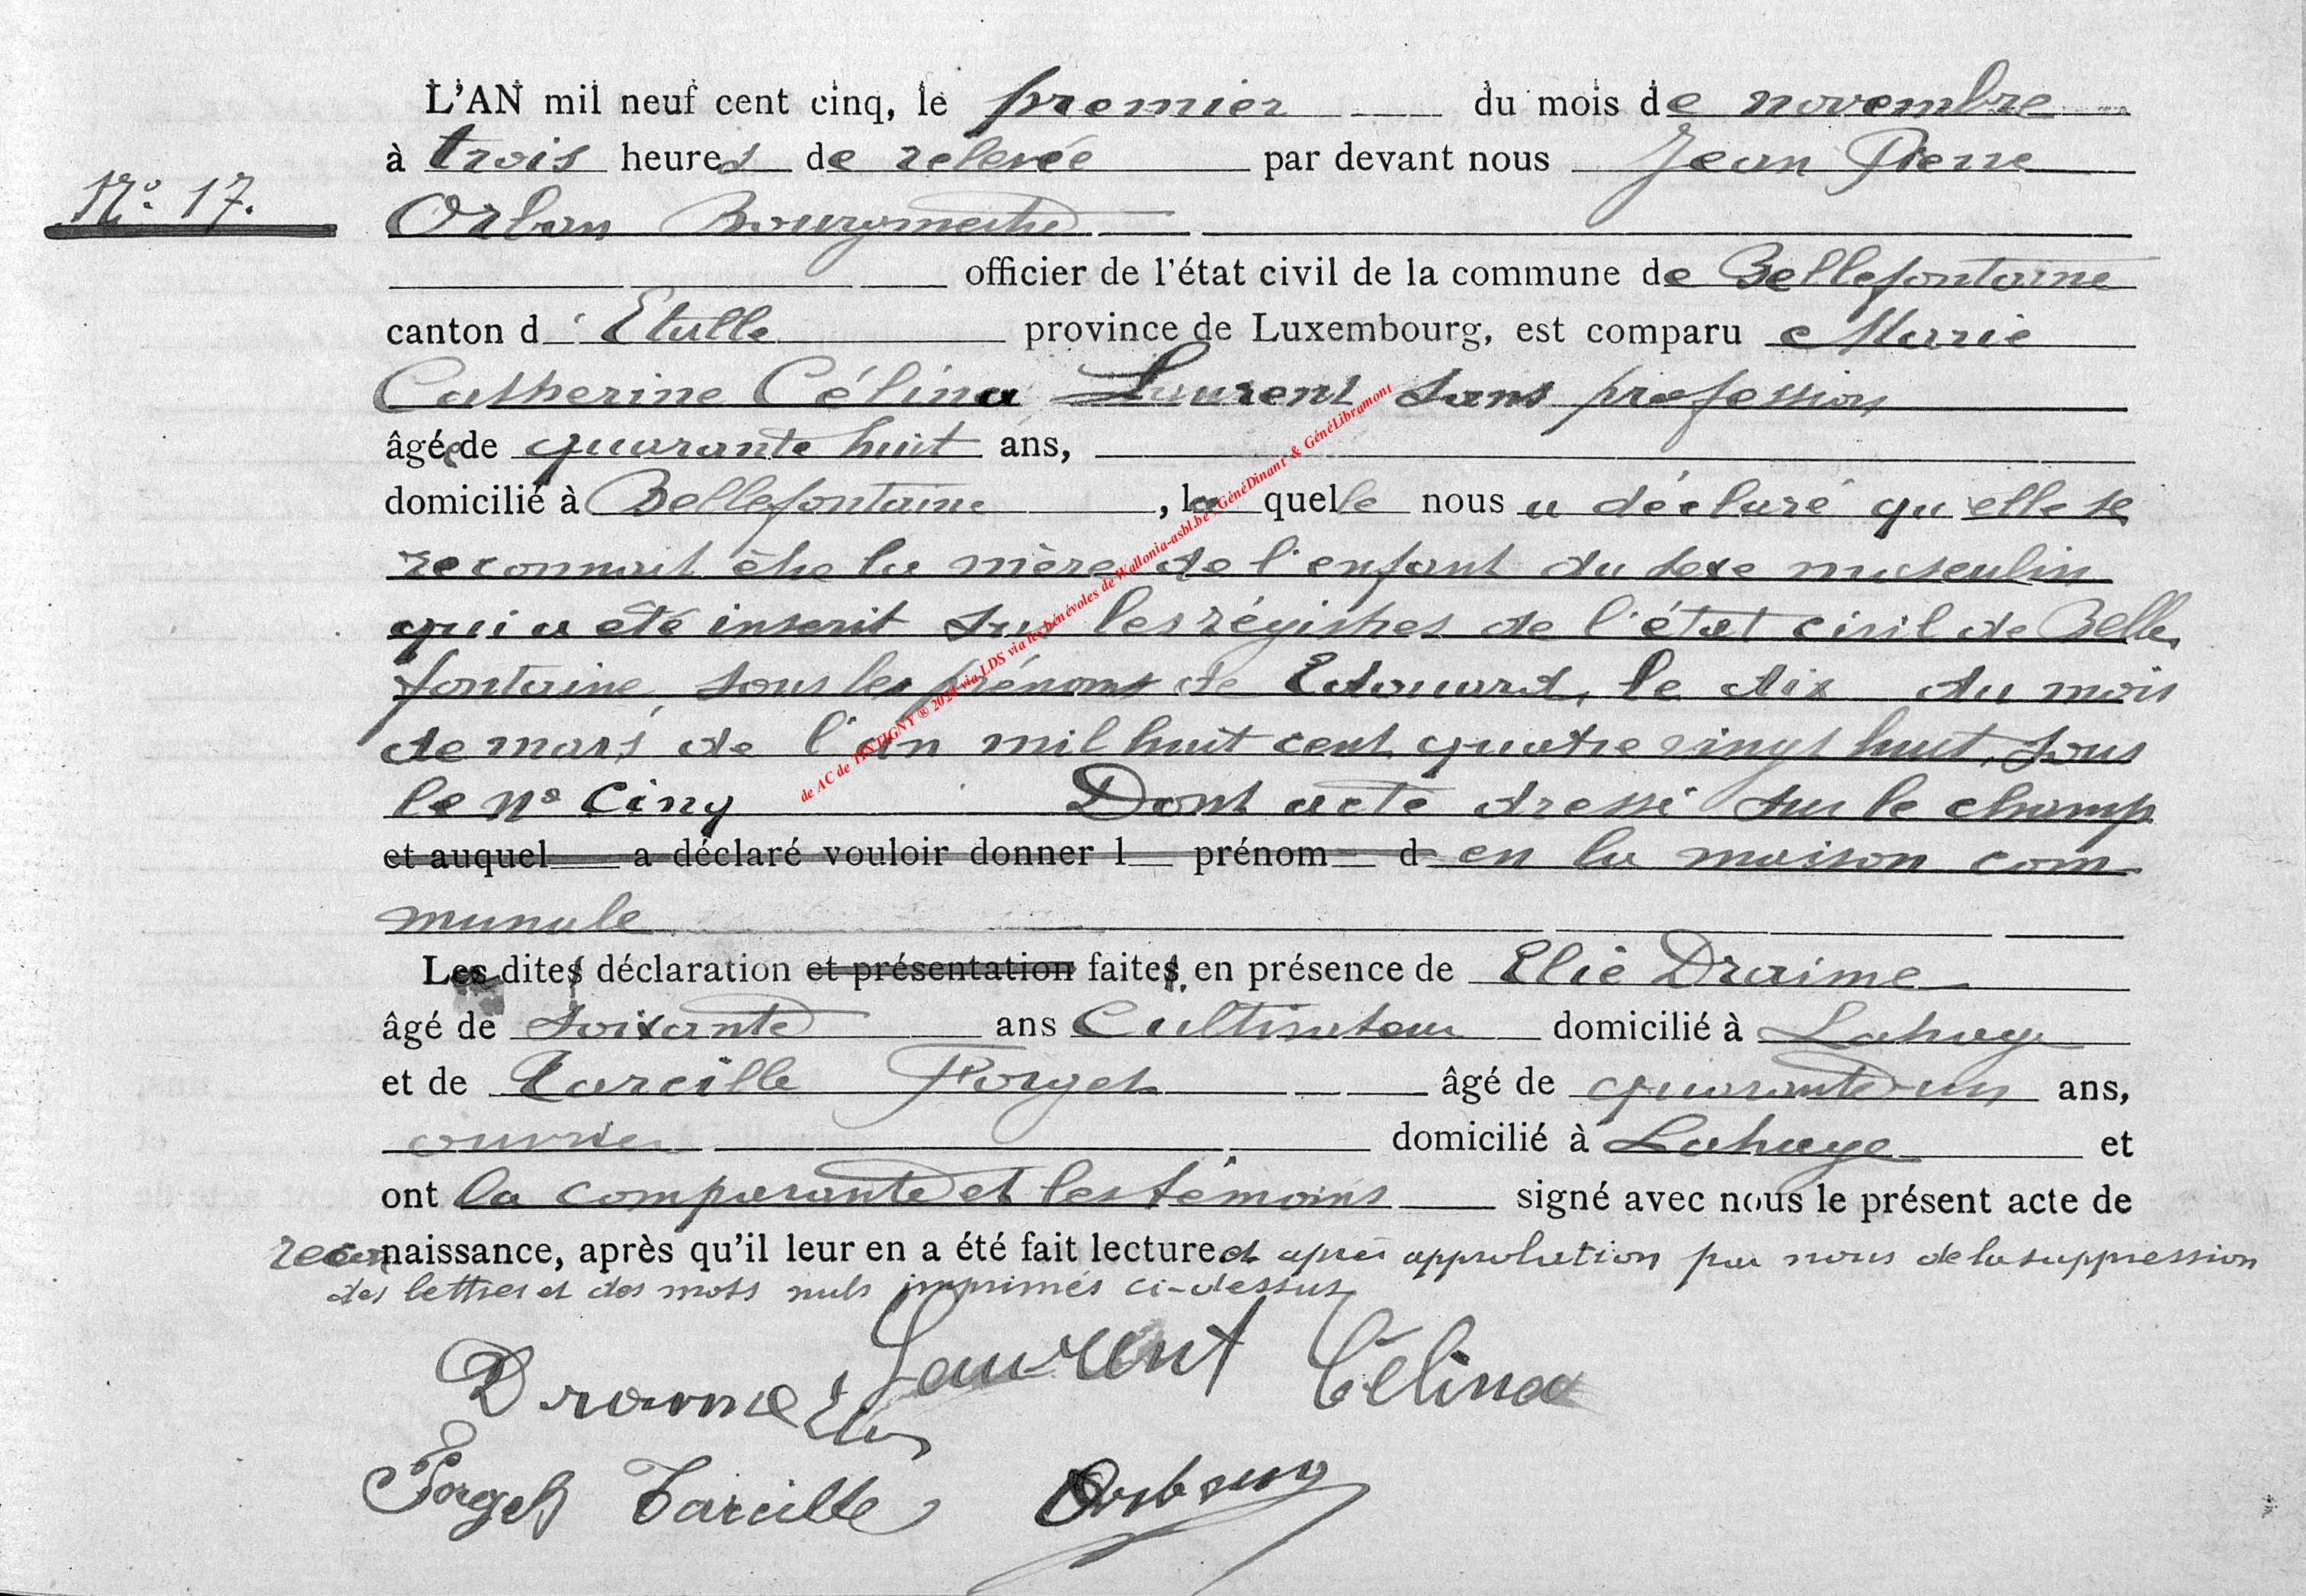 L'AN mil neuf cent cinq, le premier du mois de novembre
à trois heures de relevée par devant nous Jean Pierre
N° 17.
Orban Bourgmestre
officier de l'état civil de la commune de Bellefontaine
canton d'Etalle province de Luxembourg, est comparue Marie
Catherine Célina Laurent sans profession
âgée de quarante huit ans,
domicilié à Bellefontaine, laquelle nous a déclaré qu'elle se
reconnait être la mère de l'enfant du sexe masculin
qui a été inscrit sur les régistres de l'état civil de Belle
fontaine, sous les prénoms de Edouard, le dix du mois
de mars, de l'an mil huit cent quatre vingt huit, sous
le n° Cinq Dont acte dressé sur le champ
et auquel a déclaré vouloir donner l prénom d en la maison com
munale
Les dites déclaration et présentation faites, en présence de Elie Draime
âgé de soixante ans Cultivateur domicilié à Lahage
et de Tarcille Forget âgé de quarante-un ans,
ouvrier domicilié à Lahage et
ont la comparante et les témoins signé avec nous le présent acte de
reconnaissance, après qu'il leur en a été fait lecture et après approbation par nous de la suppression
des lettres et des mots nuls imprimés ci-dessus
Laurent Célina
Draime Elie
Forget Tarcille Orban
de AC de TINTIGNY ® 2024 via LDS via les bénévoles de Wallonia-asbl.be : GénéDinant & GénéLibramont